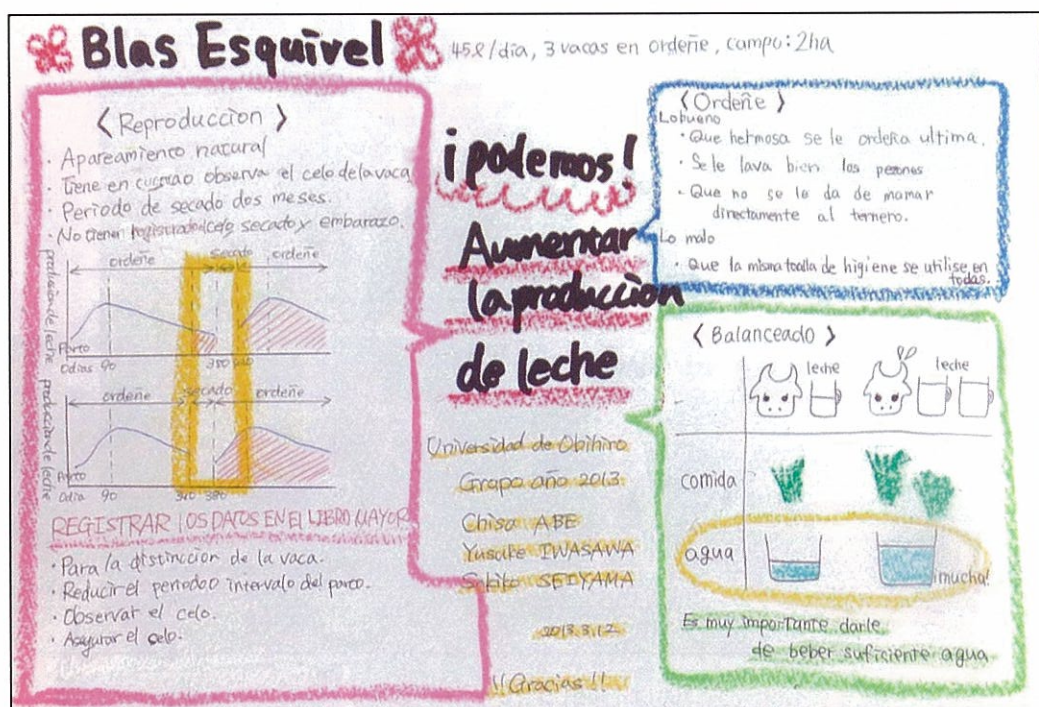 Blas Esquivel
45ℓ/día, 3 vacas en ordeñe, campo: 2ha
< Reproduccion >
· Apareamiento natural
· Tiene en cuenta observa el celo de la vaca
· Periodo de secado dos meses.
· No tienen registrado celo, secado y embarazo.
produsion de leche
ordeñe
secado
ordeñe
Parto
0días 90
produccion de leche
ordeñe
secado
ordeñe
Parto
0día 90 340 380
REGISTRAR LOS DATOS EN EL LIBRO MAYOR
· Para la distinccion de la vaca.
· Reducir el periodo o intervalo del parto.
· Observar el celo.
· Asegurar el celo.
¡podemos!
Aumentar
la produccion
de leche
Universidad de Obihiro
Grapo año 2013
Chisa ABE
Yusuke IWASAWA
SEIYAMA
2013.3.12
!!Gracias!!
< Ordeñe >
Lo bueno
· Que hermosa se le ordeña ultima.
· Se le lava bien los pezones
· Que no se le da de mamar
directamente al ternero.
Lo malo
· Que la misma toalla de higiene se utilise en
todas.
< Balanceado >
leche
leche
comida
agua
¡mucha!
Es muy importante darle
de beber suficiente agua